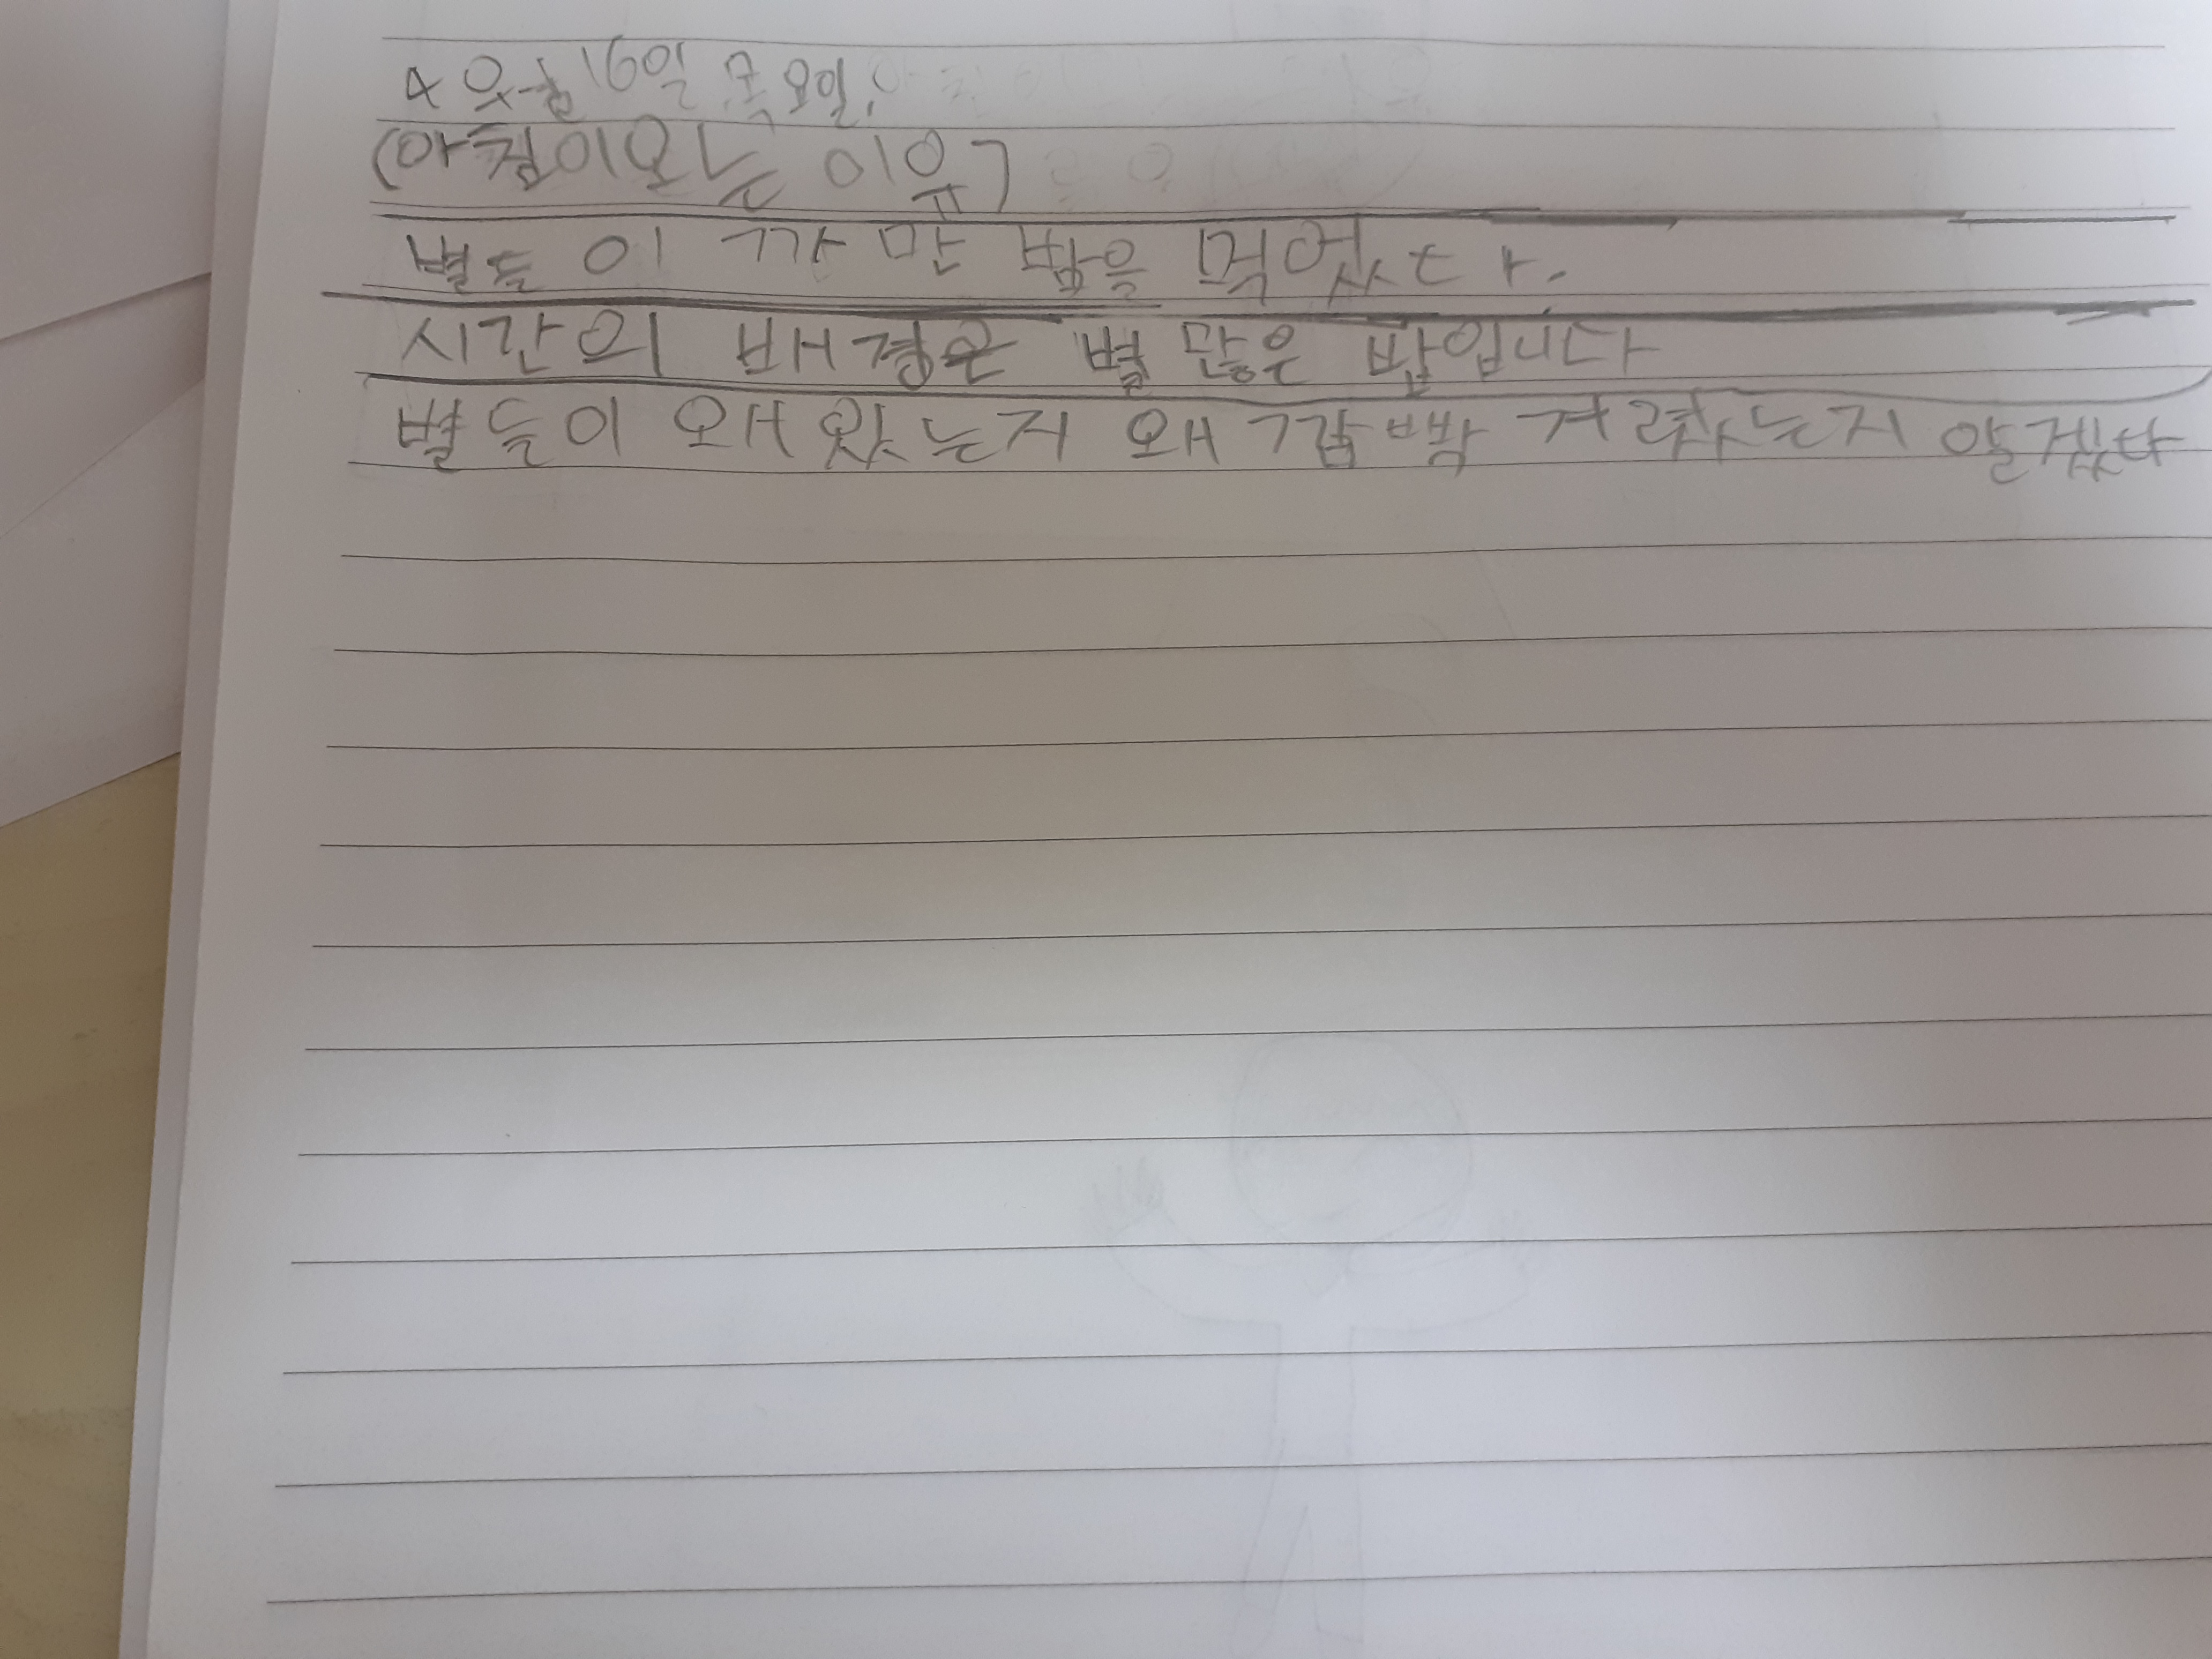 4월 16일 목요일
(아침이오는 이유)
별들이 까만 밤을 먹었다.
시간의 배경은 별 많은 밤입니다
별들이 왜 있는지 왜 깜빡 거렸는지 알겠다